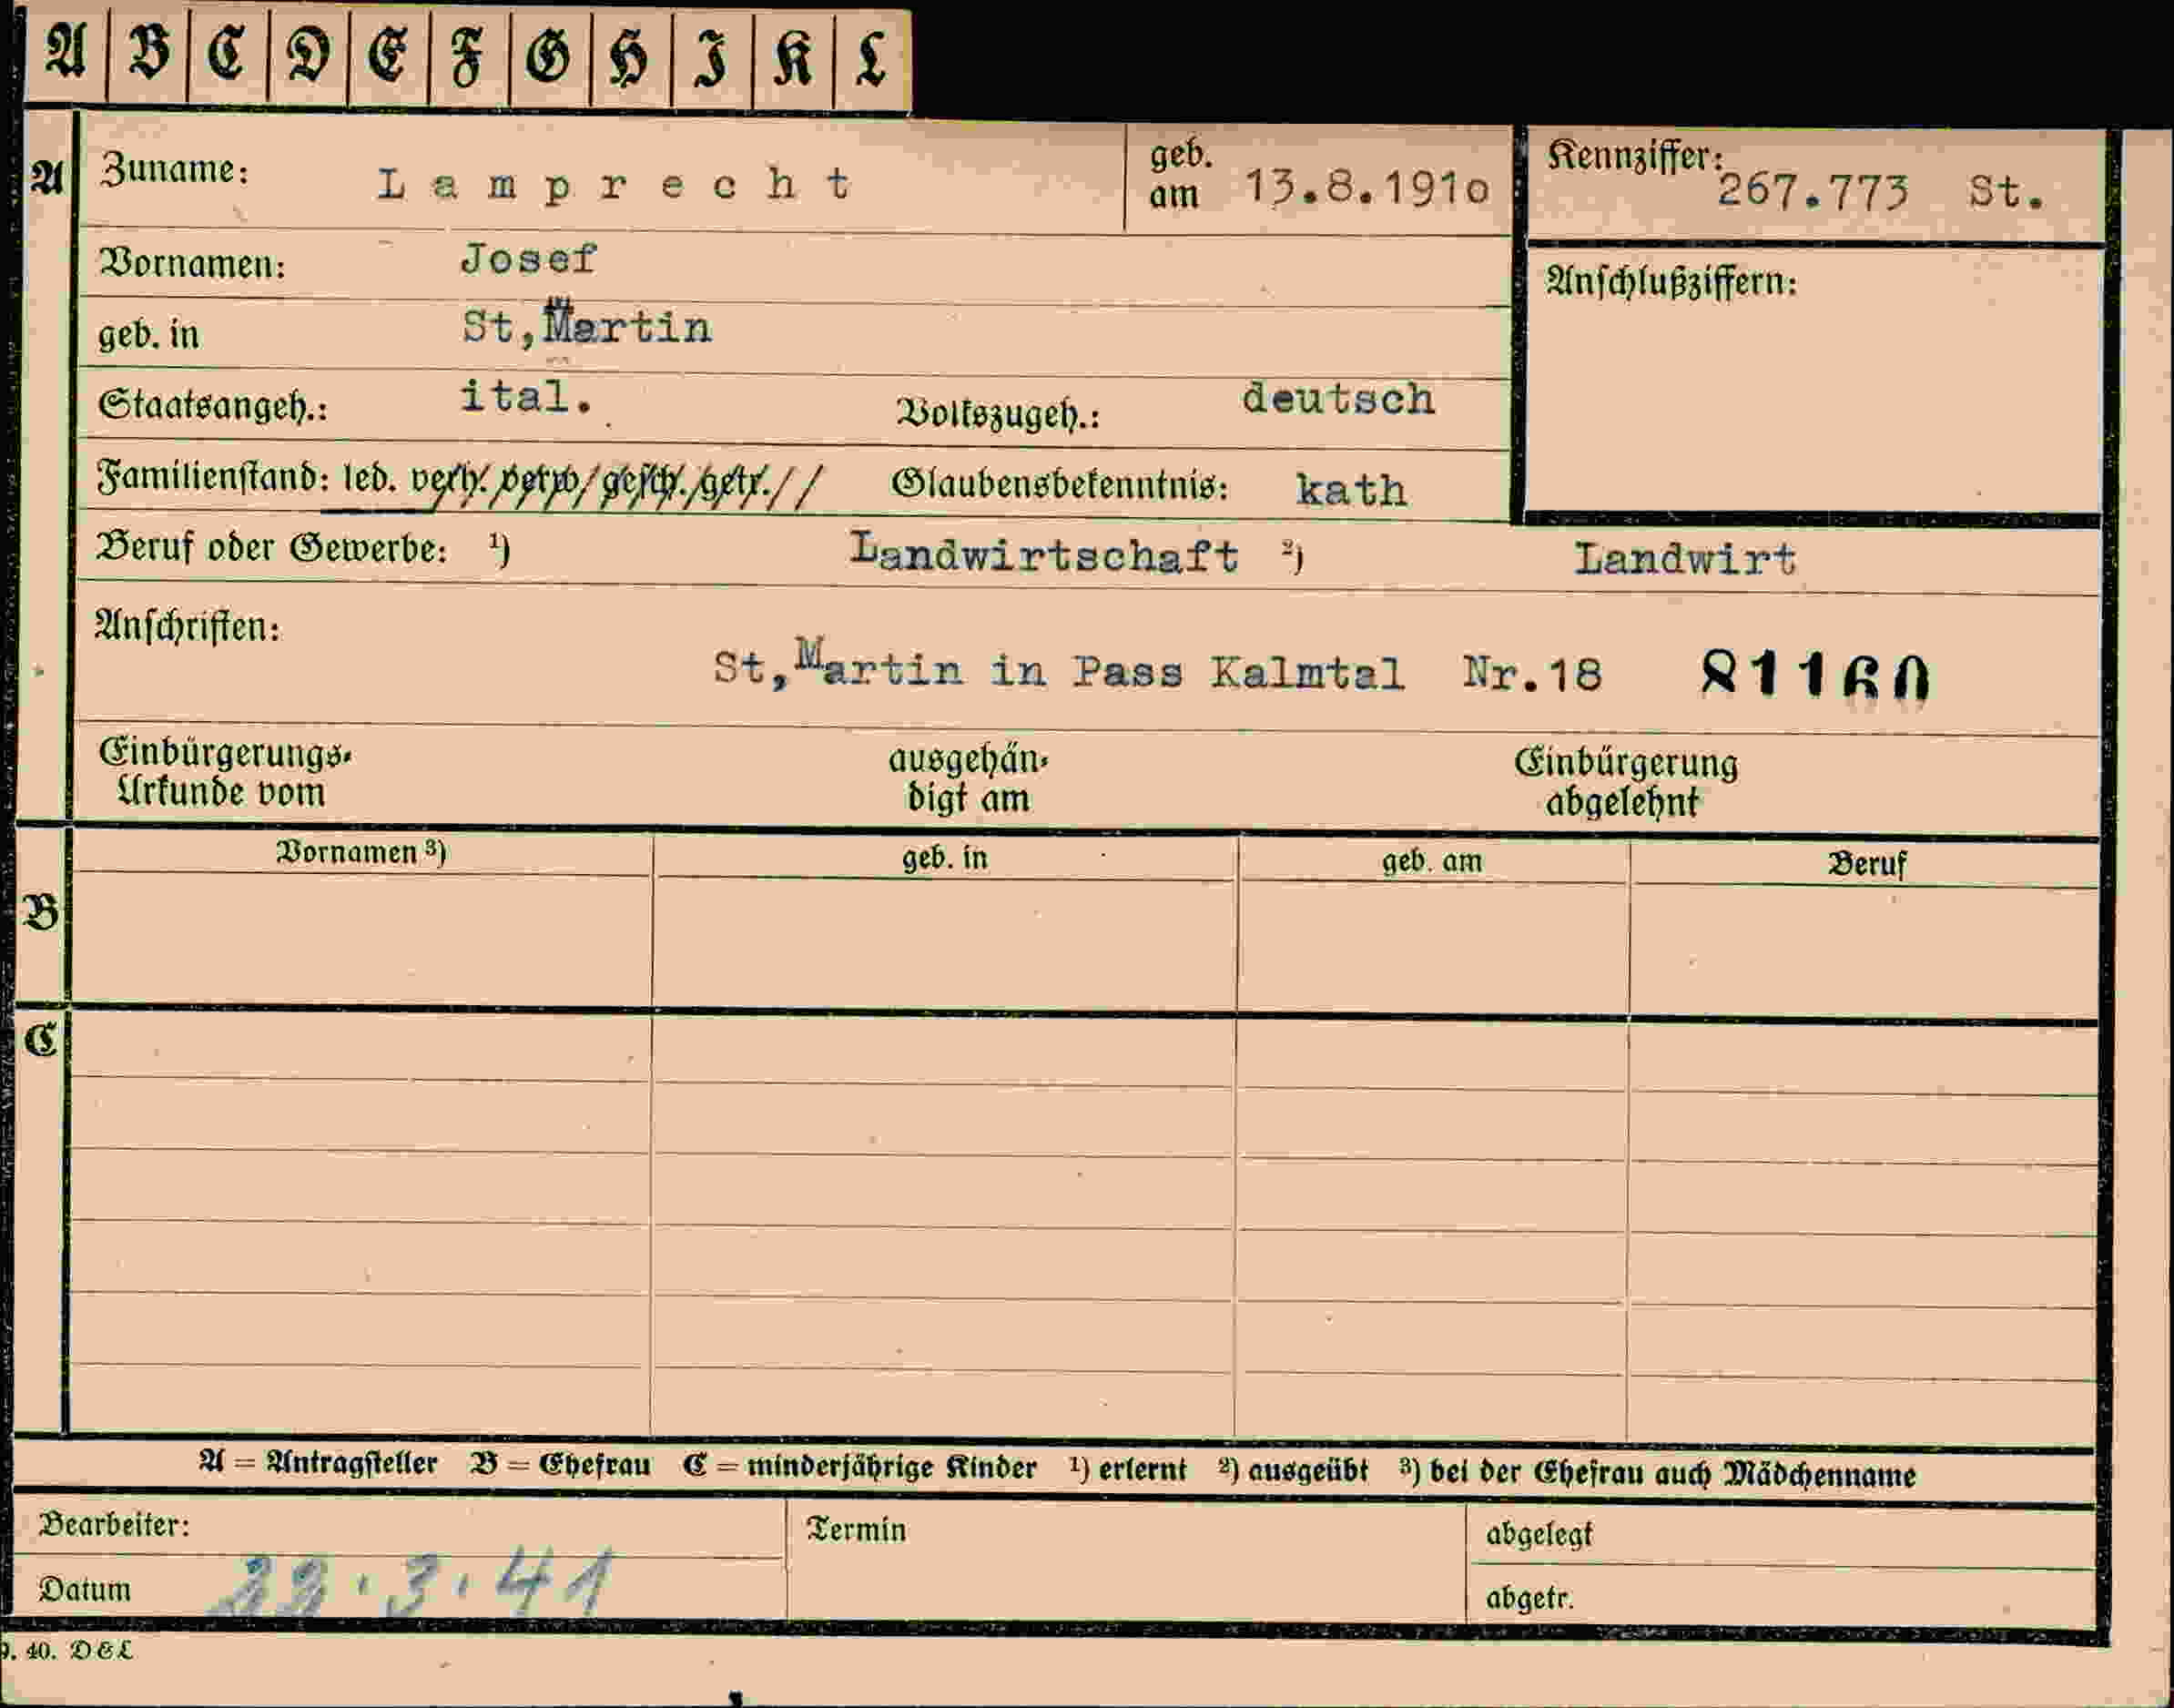 A B C D E F G H I K L
A Zuname: Lamprecht geb. am 13.8.1910 Kennziffer: 267.773 St.
Vornamen: Josef Anschlußziffern:
geb. in St,Martin
Staatsangeh.: ital. Volkszugeh.: deutsch
Familienstand: led. verh. verw. gesch. getr. Glaubensbekenntnis: kath
Beruf oder Gewerbe: ¹) Landwirtschaft ²) Landwirt
Anschriften:
St,Martin in Pass Kalmtal Nr.18 81160
Einbürgerungs- ausgehän- Einbürgerung
Urkunde vom digt am abgelehnt
Vornamen ³) geb. in geb. am Beruf
B
C
A = Antragsteller B = Ehefrau C = minderjährige Kinder ¹) erlernt ²) ausgeübt ³) bei der Ehefrau auch Mädchenname
Bearbeiter: Termin abgelegt
Datum 22.3.41 abgetr.
9. 40. D&L